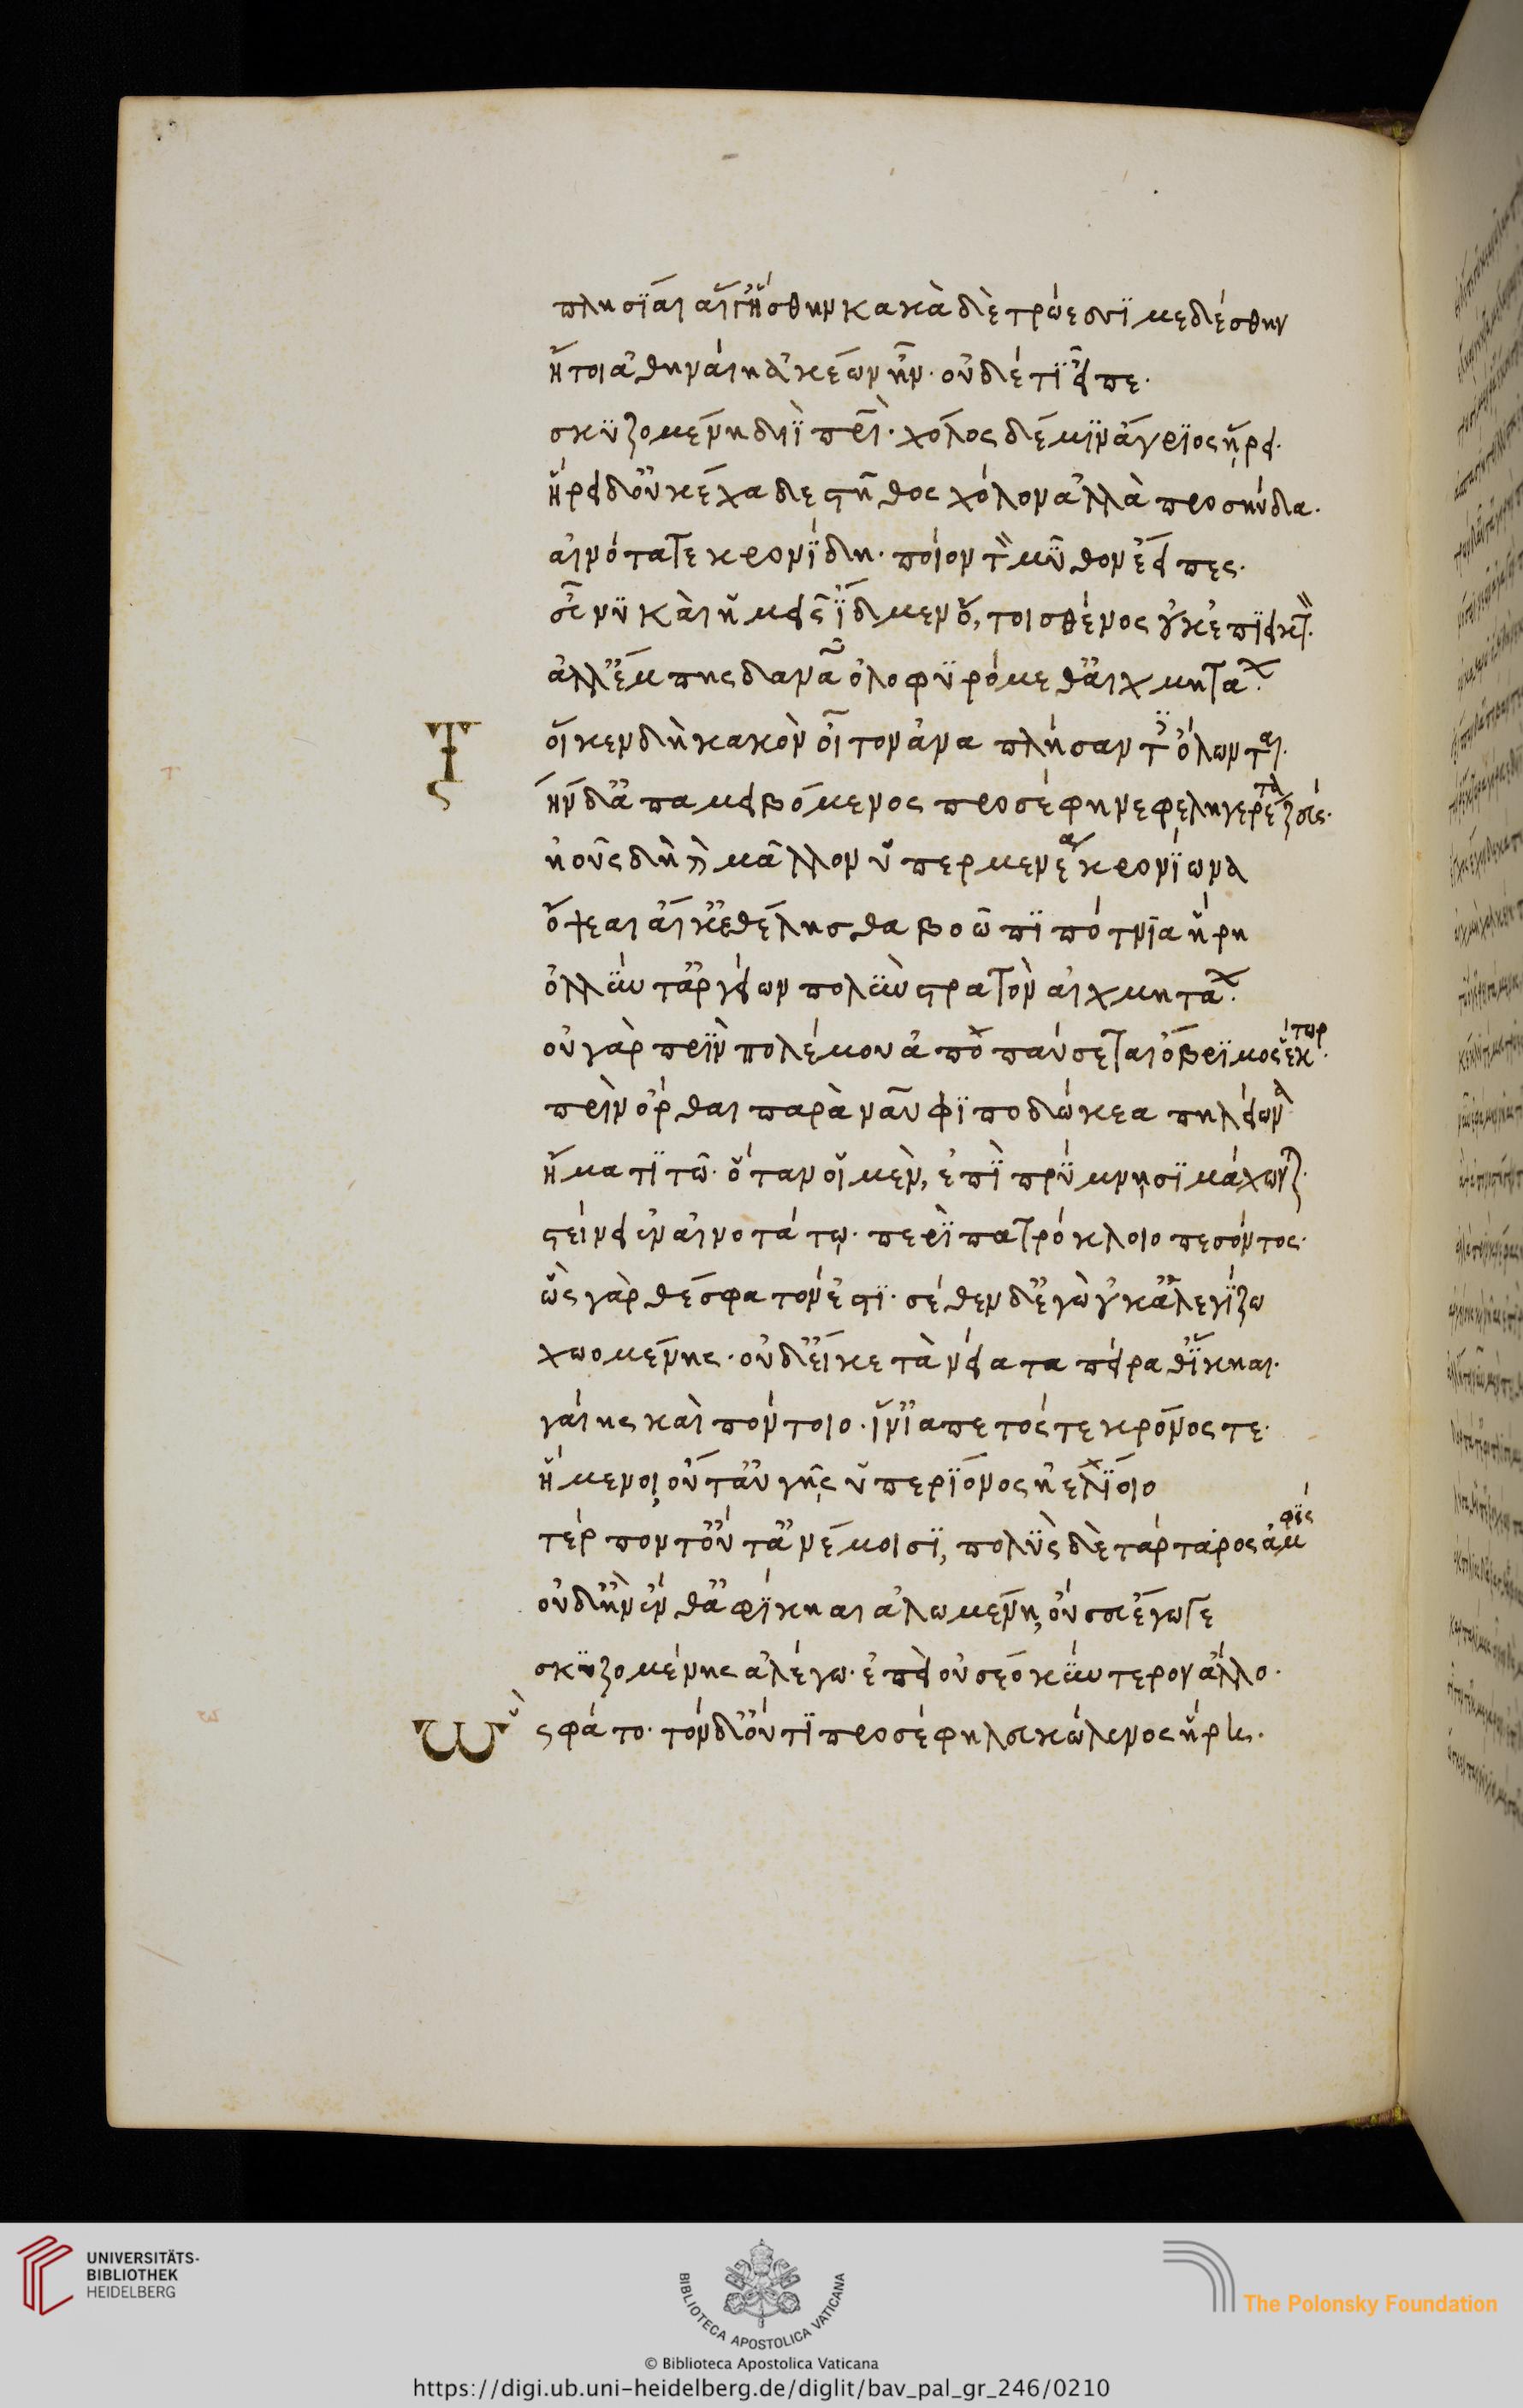 πλησίαι αἵγ' ἥσθην κακὰ δὲ τρώεσσι μεδέσθην
ἤτοι ἀθηναίη ἀκέων ἦν· οὐδέ τι εἶπε·
σκυζομένη διὶ πρὶ· χόλος δέ μιν ἄγριος ᾕρει·
ἥρει δ' οὐκ ἔχαδε στῆθος χόλον ἀλλὰ προσηύδα·
αἰνότατε κρονίδη· ποῖον τὸν μῦθον ἔειπες·
εὖ νυ καὶ ἡμεῖς ἴδμεν ὅ, τοι σθένος οὐκ ἐπιεικτὸν·
ἀλλ' ἔμπης δαναῶν ὀλοφυρόμεθ' αἰχμητάων·
οἵ κεν δὴ κακὸν οἶτον ἀναπλήσαντες ὄλωνται·
Τ
ὴν δ' ἀπαμειβόμενος προσέφη νεφεληγερέτα ζεύς·
ἠοῦς δὴ καὶ μᾶλλον ὑπερμενέα κρονίωνα
ὄψεαι αἴ κ' ἐθέλησθα βοῶπι πότνια ἥρη
ὀλλύντ' ἀργείων πολὺν στρατὸν αἰχμητάων·
οὐ γὰρ πρὶν πολέμου ἀποπαύσεται ὄβριμος ἕκτωρ·
πρὶν ὄρθαι παρὰ ναῦφι ποδώκεα πηλείωνα
ἤματι τῶ· ὅταν οἱ μὲν, ἐπὶ πρύμνῃσι μάχωνται·
στείνει ἐν αἰνοτάτῳ· περὶ πατρόκλοιο πεσόντος·
ὣς γὰρ θέσφατόν ἐστι· σέθεν δ' ἐγὼ οὐκ ἀλεγίζω
χωομένης· οὐδ' εἴ κε τὰ νείατα πείραθ' ἵκηαι·
γαίης καὶ πόντοιο· ἵν' ἰαπετός τε κρόνος τε·
ἥμενοι, οὔτ' αὐγῆς ὑπερίονος ἠελίοιο
τέρποντ' οὔτ' ἀνέμοισι, πολὺς δὲ τάρταρος ἀμφίς
οὐδ' ἢν ἔνθ' ἀφίκηαι ἀλωμένη, οὔ σευ ἔγωγε
σκυζομένης ἀλέγω· ἐπεὶ οὐ σέο κύντερον ἄλλο·
Ὣς φάτο· τὸν δ' οὔτι προσέφη λευκώλενος ἥρη·
UNIVERSITÄTS-
BIBLIOTHEK
HEIDELBERG
BIBLIOTECA APOSTOLICA VATICANA
The Polonsky Foundation
© Biblioteca Apostolica Vaticana
https://digi.ub.uni-heidelberg.de/diglit/bav_pal_gr_246/0210